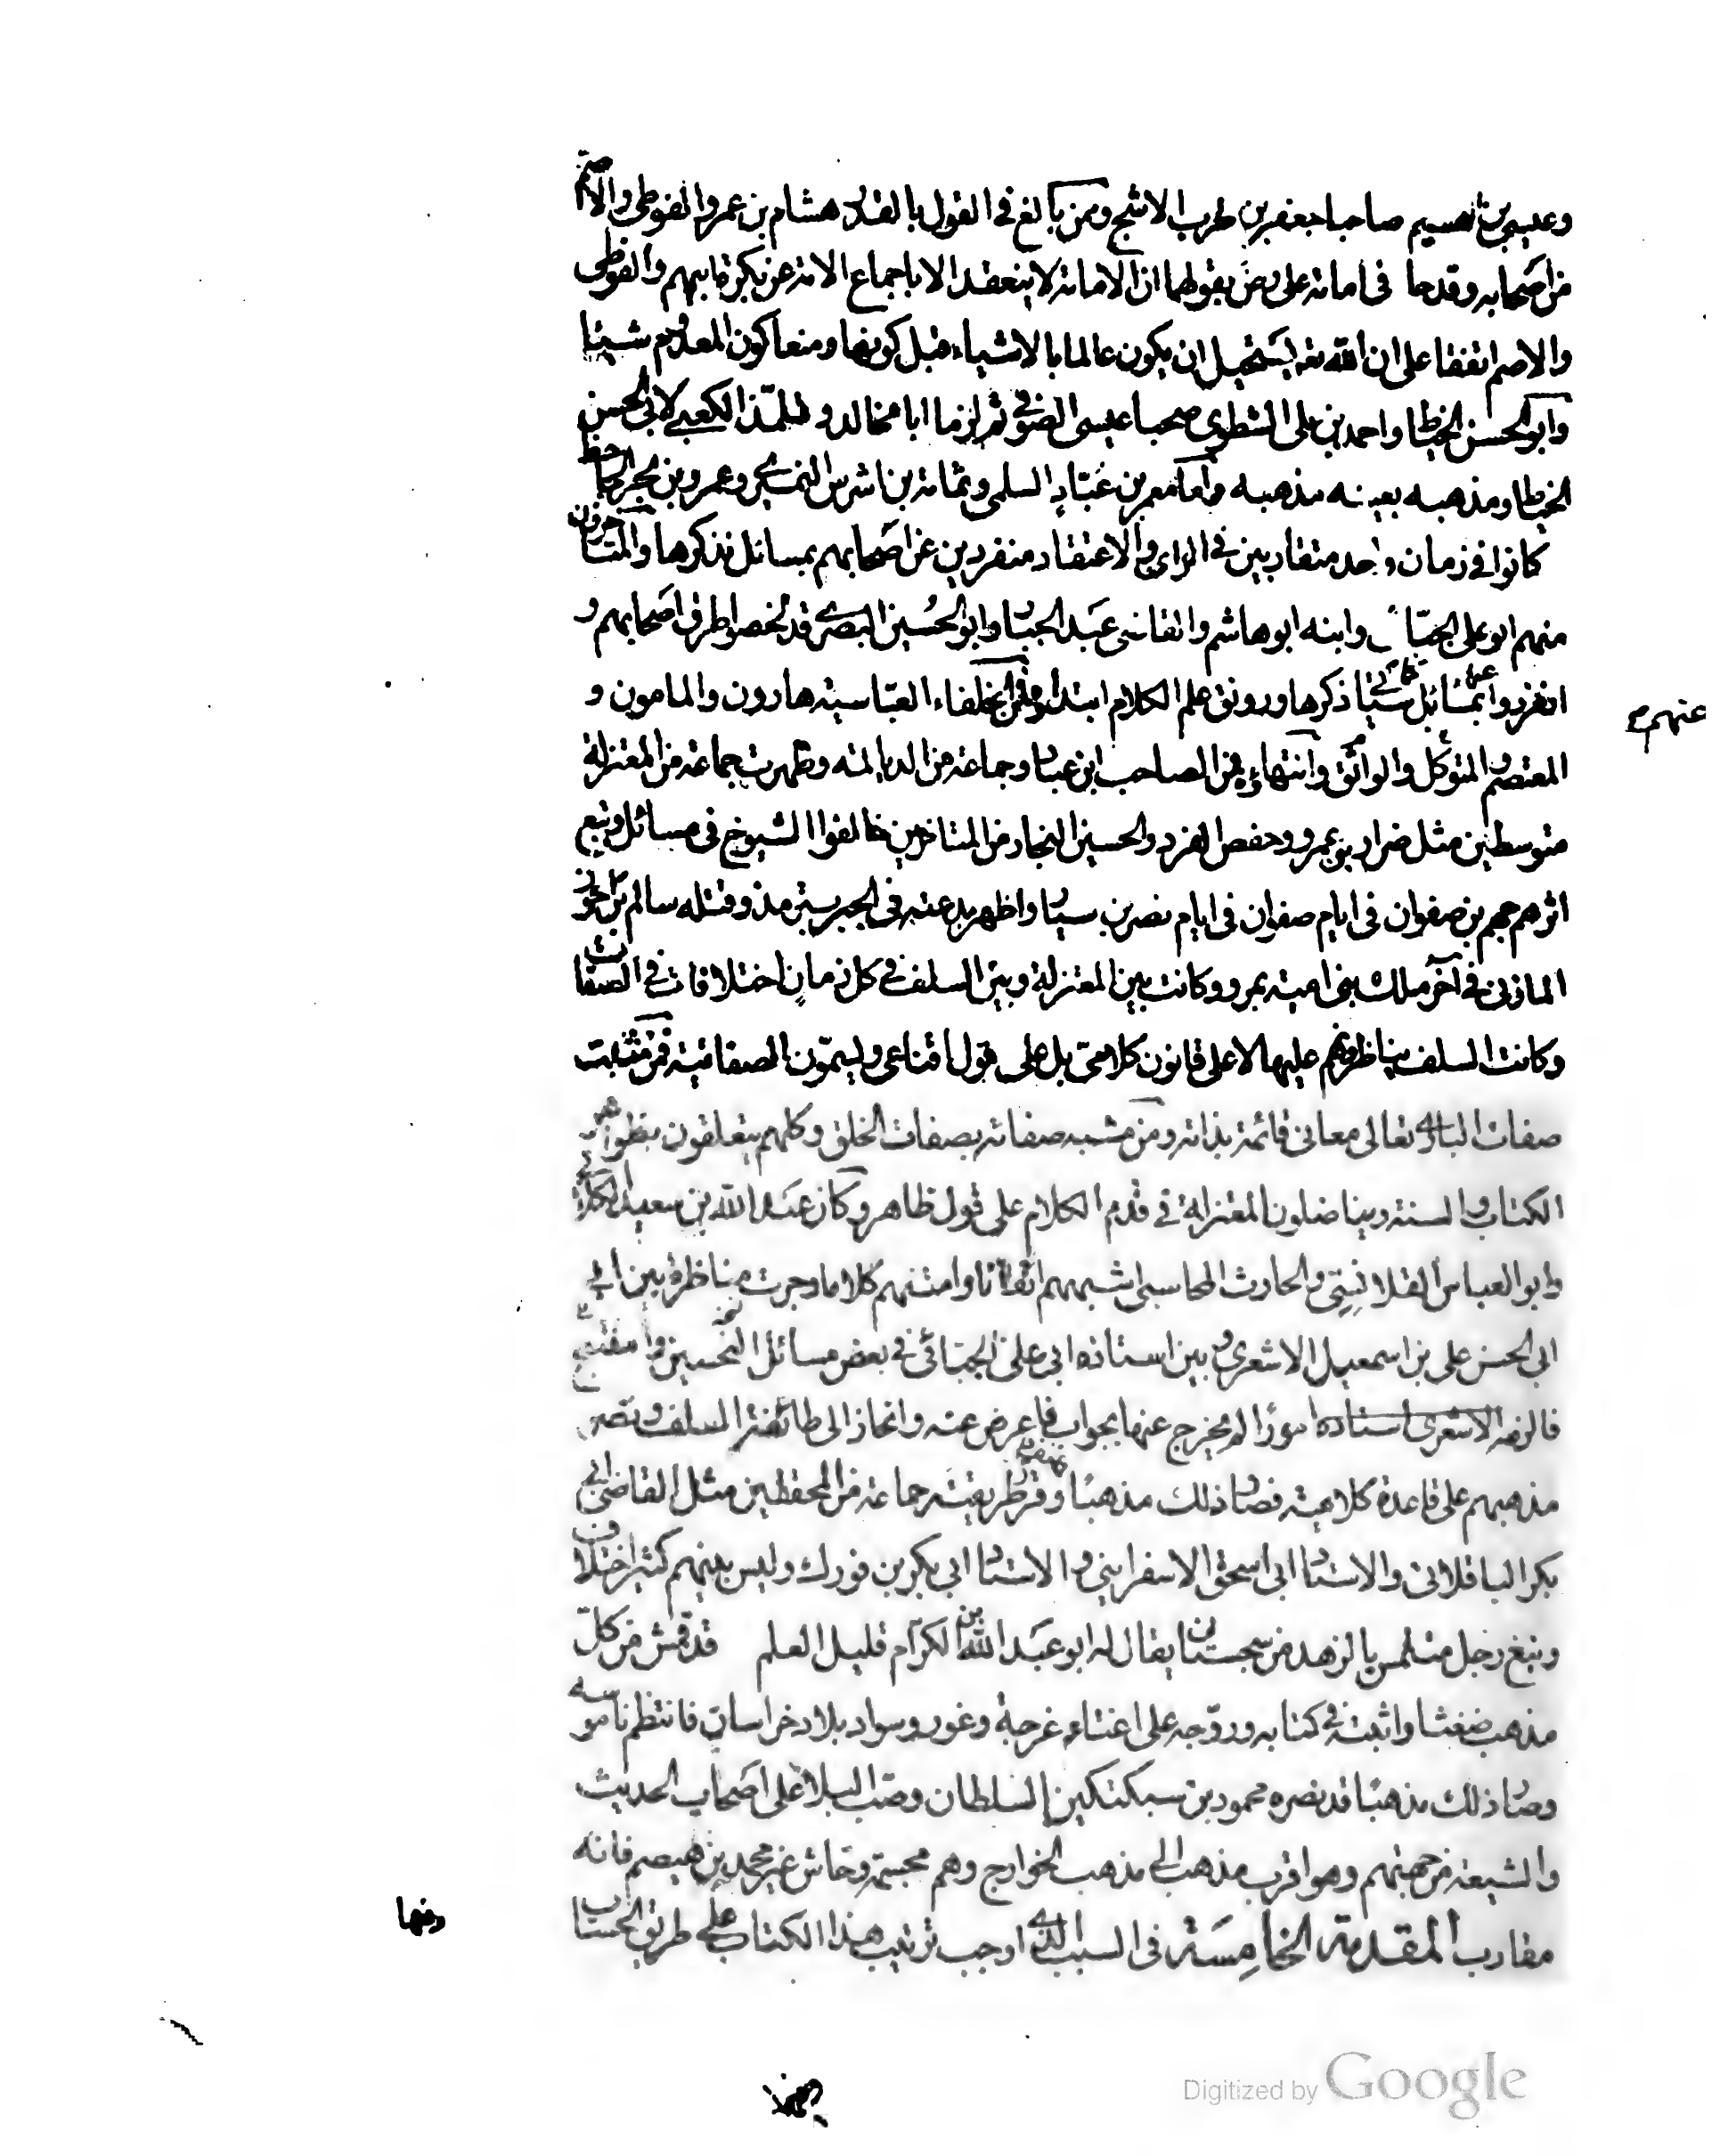 وعيسى بن الهيثم صاحبا جعفر بن حرب الاشج وممن بالغ في القول بالقدر هشام بن عمرو الفوطى والاصم
من اصحابه وقدحا في امامة على رض بقولهما ان الامامة لا ينعقد الا باجماع الامة عن بكرة ابيهم والفوطى
والاصم اتفقا على ان الله تع يستحيل ان يكون عالما بالاشياء قبل كونها ومنعا كون المعدوم شيئا
وابو الحسن الخياط واحمد بن على الشطوى صحبا عيسى الصوفي ثم لزما ابا مخالد وتلمذ الكعبي لابي الحسن
الخياط ومذهبه بعينه مذهبه واما معمر بن عَبّادٍ السلمى وثمامة بن اشرس النميري وعمرو بن بحر الجاحظ
كانوا في زمان واحد متقاربين في الراى والاعتقاد منفردين عن اصحابهم بمسائل نذكرها والمتاخرون
منهم ابو على الجبائى وابنه ابو هاشم والقاضى عبد الجبار وابو الحسين البصرى قد لخصوا طرق اصحابهم و
انفردوا عنهم بمسائل سياتي ذكرها ورونق علم الكلام ابتداؤه فمن الخلفاء العباسية هارون والمامون و
عنهم
المعتصم والمتوكل والواثق وانتهاؤه فمن الصاحب ابن عباد وجماعة من الديالمة وظهرت جماعة من المعتزلة
متوسطين مثل ضرار بن عمرو وحفص الفرد والحسين النجار من المتاخرين خالفوا الشيوخ في مسائل ونبع
اثرهم جهم بن صفوان في ايام صفوان في ايام نصر بن سيار واظهر بدعته في الجبر بترمذ وقتله سالم بن احوز
المازنى في آخر ملك بنى امية بمرو وكانت بين المعتزلة وبين السلف في كل زمانٍ اختلافات في الصفات
وكانت السلف يناظرونهم عليها لا على قانون كلامى بل على قول اقناعى ويسمّون الصفاتية فمن مثبت
صفات البارى تعالى معانى قائمة بذاته ومن مشبه صفاته بصفات الخلق وكلهم يتعلقون بظواهر
الكتاب والسنة ويناضلون المعتزلة في قدم الكلام على قول ظاهر وكان عبد الله بن سعيد الكلابى
وابو العباس القلانسى والحارث المحاسبى اشبههم اتقانا وامتنهم كلاما وجرت مناظرة بين ابى
ابى الحسن على بن اسمعيل الاشعرى وبين استاذه ابى على الجبائى في بعض مسائل التحسين والتقبيح
فالزمه الاشعرى استاذه امورا لم يخرج عنها بجواب فاعرض عنه وانحاز الى طائفة السلف ونصر
مذهبهم على قاعدة كلامية فصار ذلك مذهبا وقرر طريقته جماعة من المحققين مثل القاضى ابى
بكر الباقلانى والاستاد ابى اسحق الاسفراينى والاستاد ابى بكر بن فورك وليس بينهم كثير اختلاف
ونبغ رجل متلمس بالزهد من سجستان يقال له ابو عبد الله بن الكرّام قليل العلم قد قمش من كلّ
مذهب ضغثا واثبته في كتابه وروّجه على اغتام غرجة وغور وسواد بلاد خراسان فانتظم ناموسه
وصار ذلك مذهبا قد نصره محمود بن سبكتكين السلطان وصبّ البلاء على اصحاب الحديث
والشيعة من جهتهم وهو اقرب مذهب الى مذهب الخوارج وهم مجسمة وحاش غير محمد بن هيصم فانه
مقارب المقدمة الخامِسَة في السبب الذى اوجب ترتيب هذا الكتاب على طريق الحساب
وفيها
Digitized by Google